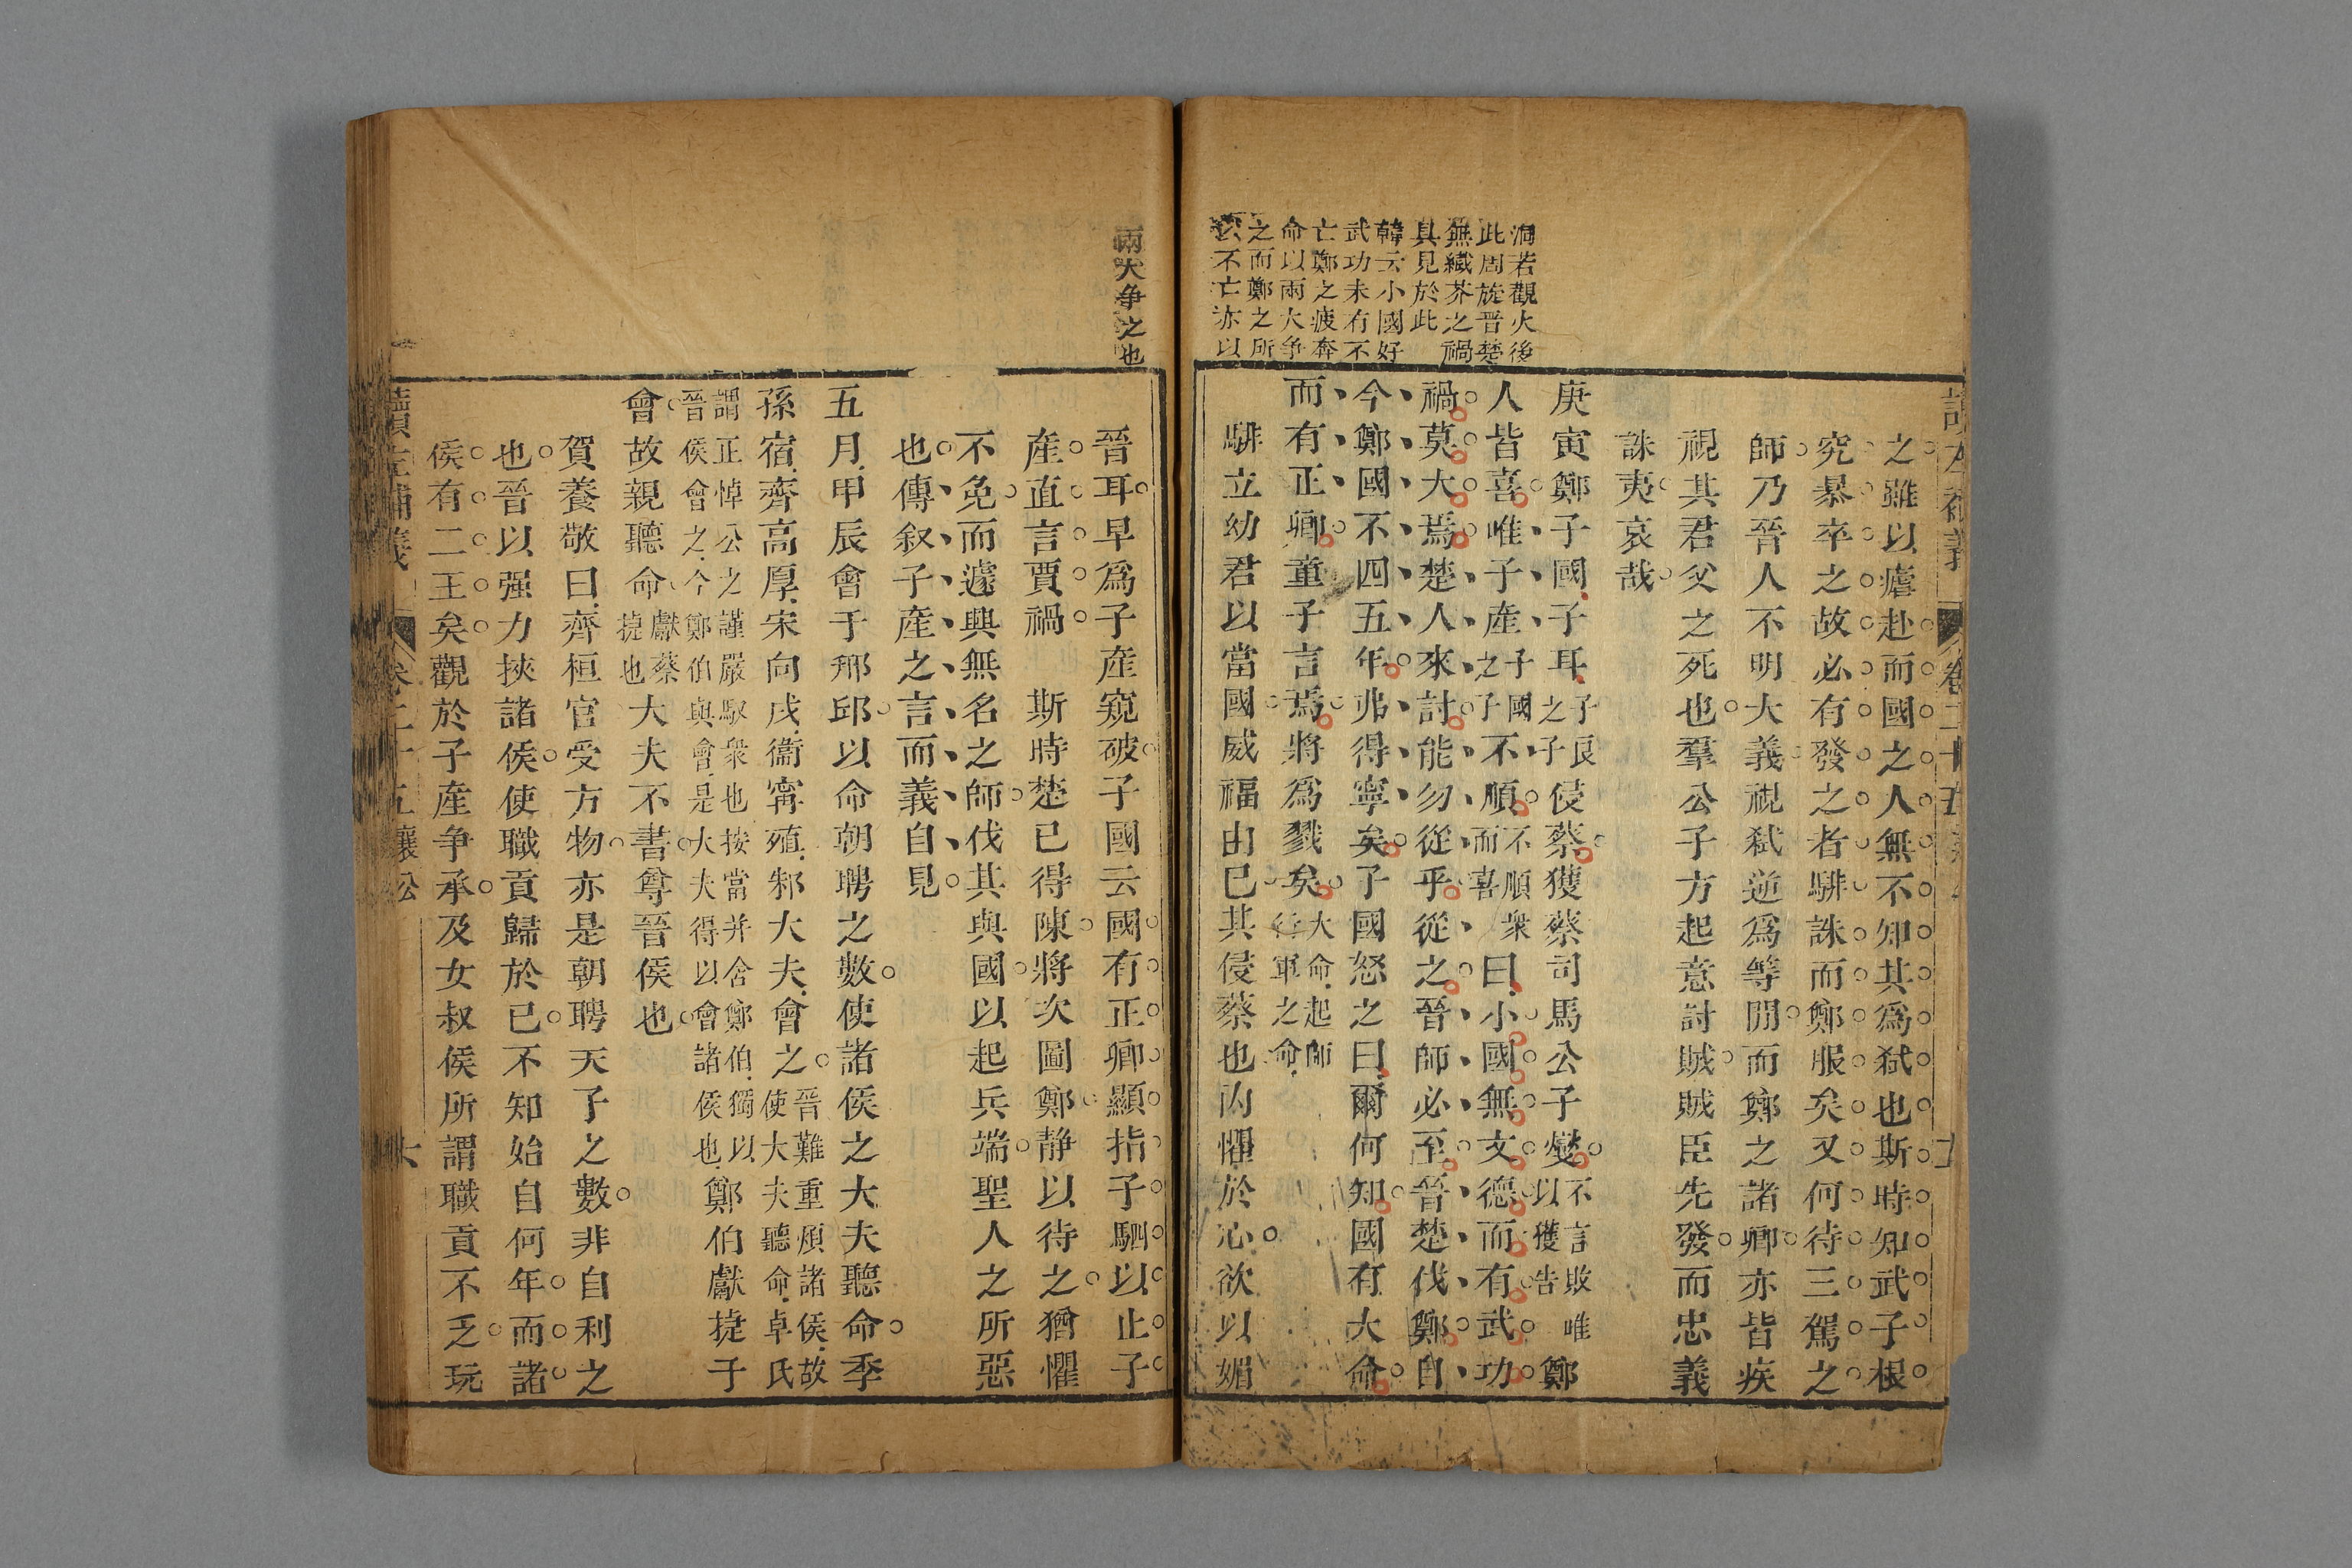 洞若觀火後
此周旋晉楚
無纖芥之禍
具見於此
韓云小國好
武功未有不
亡鄭之疲奔
命以兩大争
之而鄭之所
以不亡亦以
之雖以瘧赴而國之人無不知其爲弑也斯時知武子根
究暴卒之故必有發之者騑誅而鄭服矣又何待三駕之
師乃晉人不明大義視弑逆爲等閒而鄭之諸卿亦皆疾
視其君父之死也羣公子方起意討賊賊臣先發而忠義
誅夷哀哉
庚寅鄭子國子耳子良之子侵蔡獲蔡司馬公子燮不言敗唯以獲告鄭
人皆喜唯子產子國之子不順不順衆而喜曰小國無文德而有武功
禍莫大焉楚人來討能勿從乎從之晉師必至晉楚伐鄭自
今鄭國不四五年弗得寧矣子國怒之曰爾何知國有大命
而有正卿童子言焉將爲戮矣大命起師行軍之命
騑立幼君以當國威福由已其侵蔡也內懼於心欲以媚
兩大争之也
晉耳早爲子產窺破子國云國有正卿顯指子駟以止子
產直言賈禍 斯時楚已得陳將次圖鄭静以待之猶懼
不免而遽興無名之師伐其與國以起兵端聖人之所惡
也傳叙子產之言而義自見
五月甲辰會于邢邱以命朝聘之數使諸侯之大夫聽命季
孫宿齊高厚宋向戌衞甯殖邾大夫會之晉難重煩諸侯故使大夫聽命卓氏
謂正悼公之謹嚴馭衆也按當并舍鄭伯獨以晉侯會之今鄭伯與會是大夫得以會諸侯也鄭伯獻捷于
會故親聽命獻蔡捷也大夫不書尊晉侯也
賀養敬曰齊桓官受方物亦是朝聘天子之數非自利之
也晉以强力挾諸侯使職貢歸於已不知始自何年而諸
侯有二王矣觀於子產争承及女叔侯所謂職貢不乏玩
讀左補義 卷二十五襄公 六